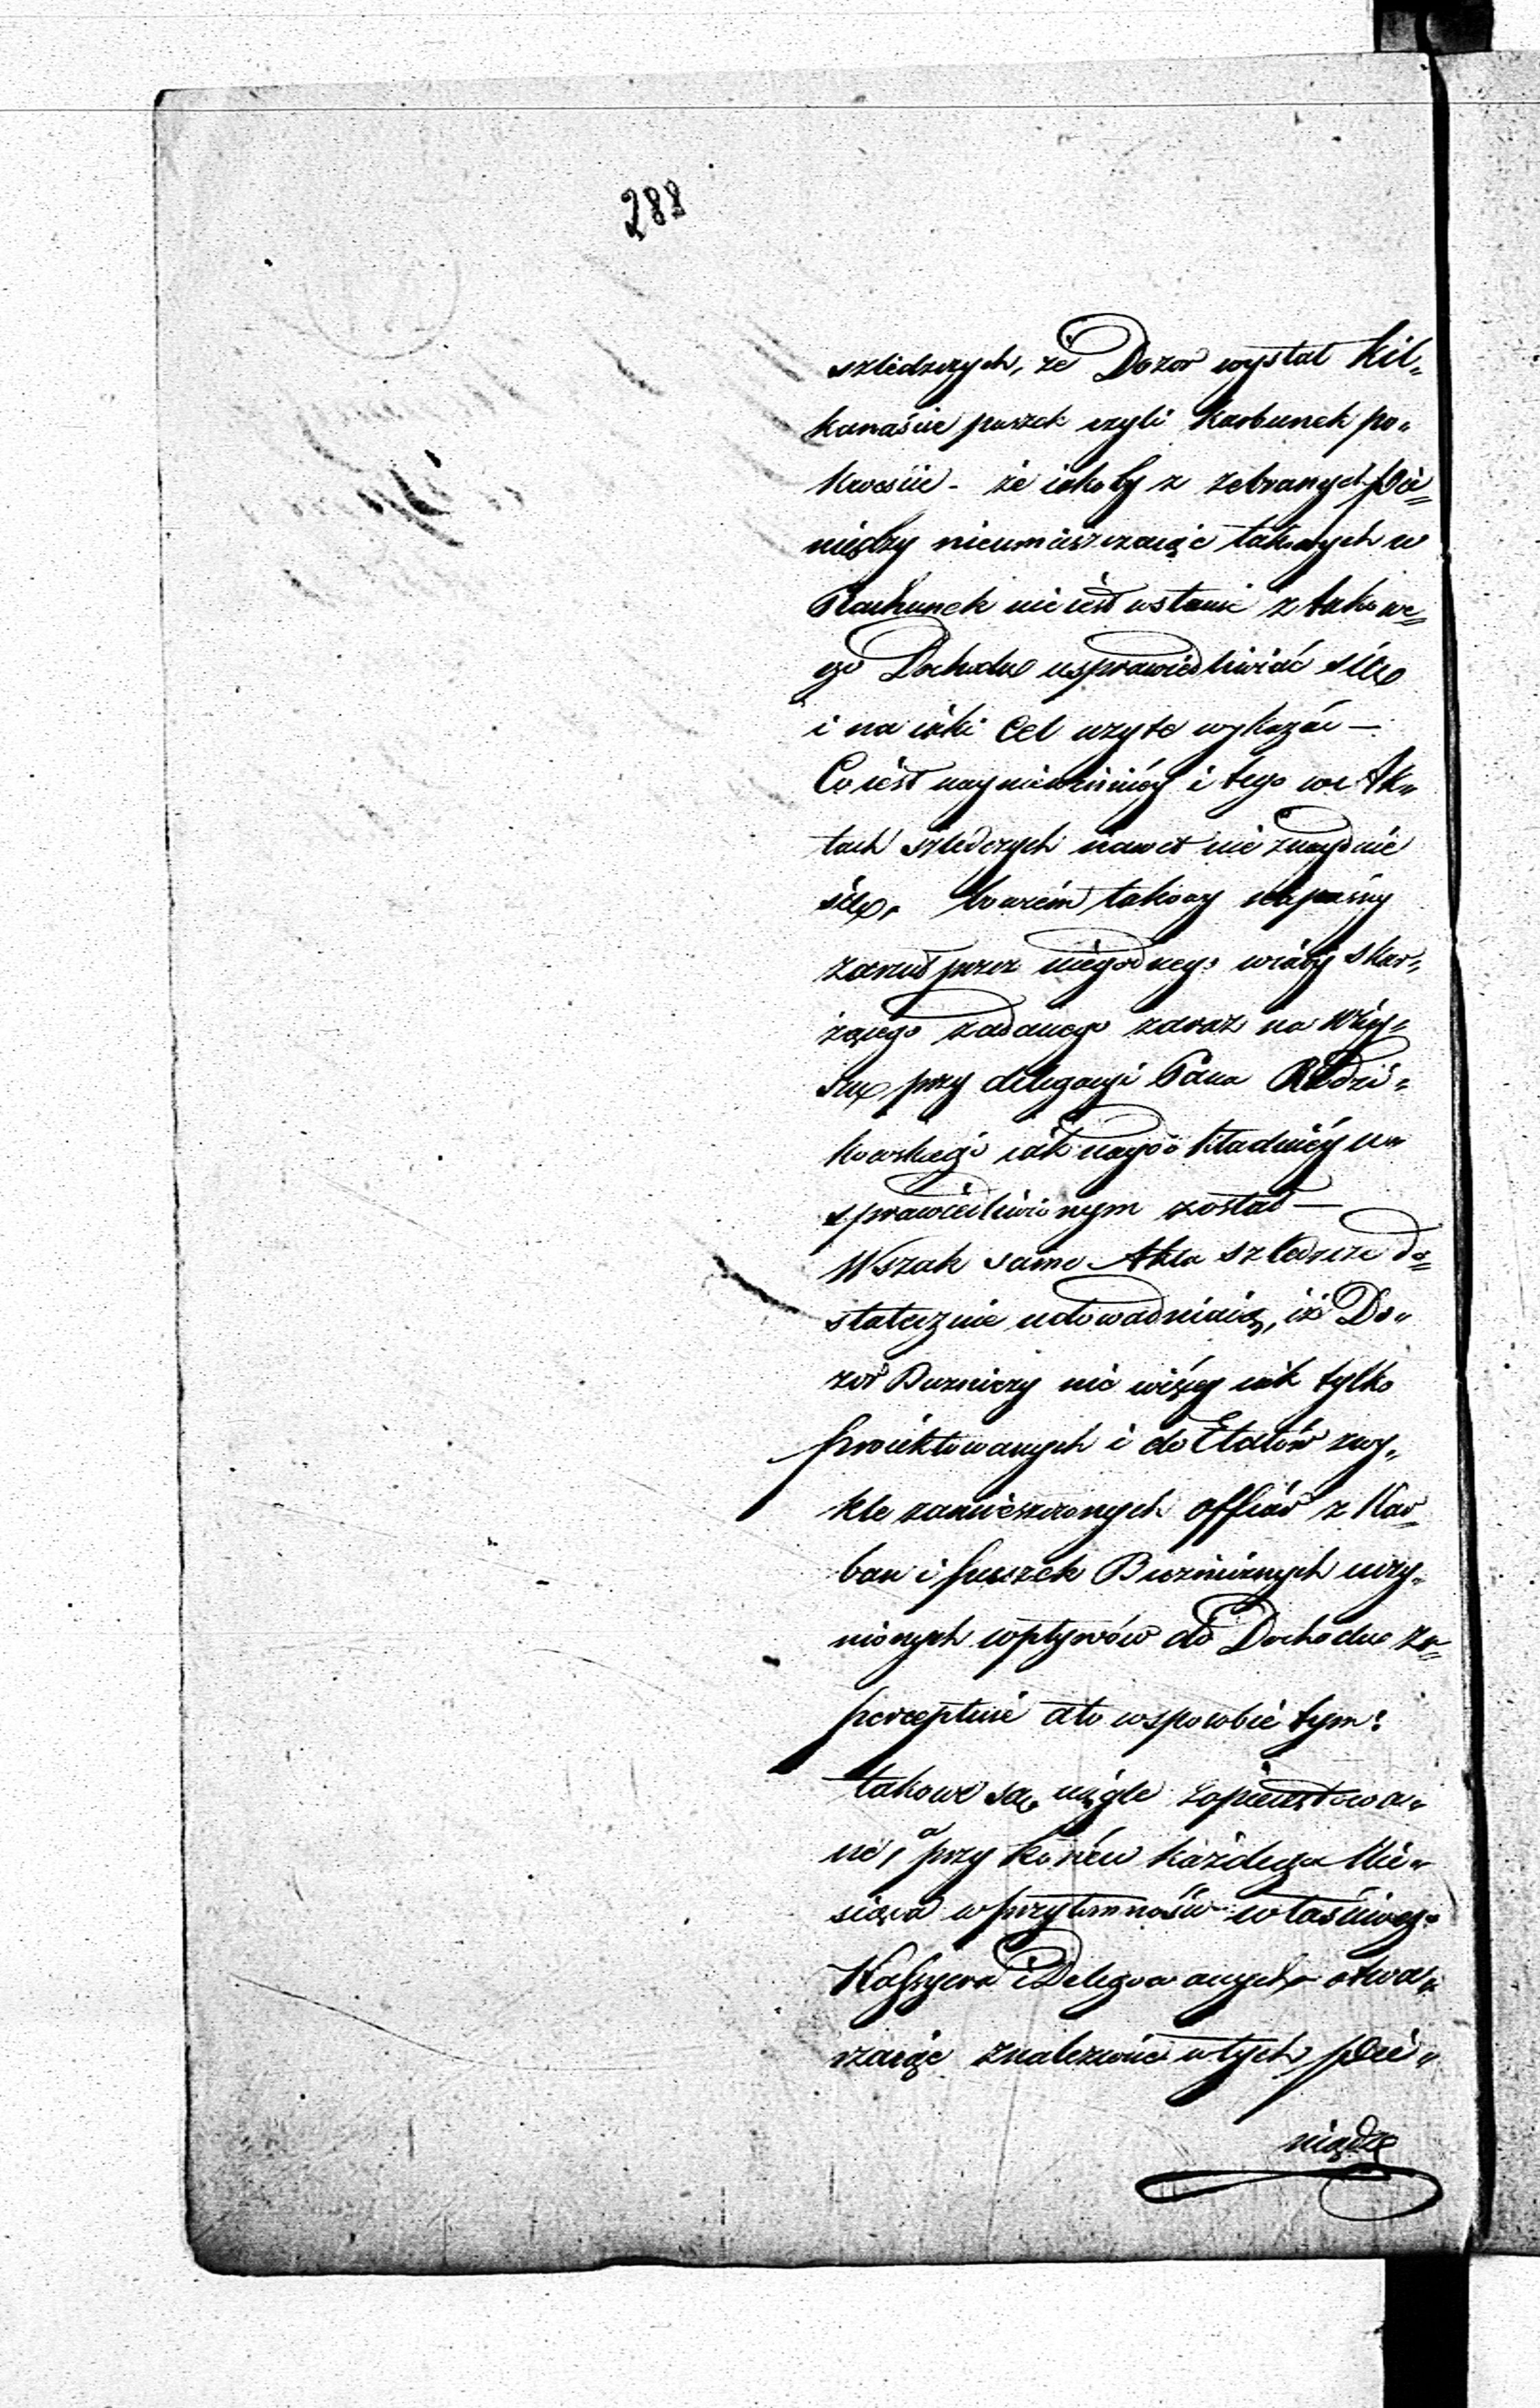 288
szledczych, że Dozor wysłał kil„
kanaście puszek czyli karbunek po„
kweście - że iakoby z zebranych Pie„
niędzy nieumieszczaiąc takowych w
Rachunek nie iest wstanie z takowe„
go Dochodu usprawiedliwiać się
i na iaki Cel użyte wykazać —
Co iest naymniej i tego we Ak„
tach szledczych nawet nie znayduie
się, bowiem takowy napaśny
zarzut przez niegodnego wiary skar„
żącego zadanego zaraz na
przy delegacyi Pana Radzi„
kowskiego iak naydokładniey u„
sprawiedliwionym został —
Wszak same Akta szledcze do„
statecznie udowadniaią, iż Do„
zór Bużniczy nic więcey iak tylko
proiektowanych i do Etatów zwy„
kle zamieszczonych offiar z Kar„
ban i puszek Bużnicznych uczy„
nionych wpływów do Dochodu za„
perceptuie a to wsposobie tym:
takowe są ciągle zapieczętowa„
ne, a przy końcu każdego Mie„
siąca w przytomności właściwego
Kassyera i Delegowanych otwa„
rzaiąc znalezione w tych pie„
niądze